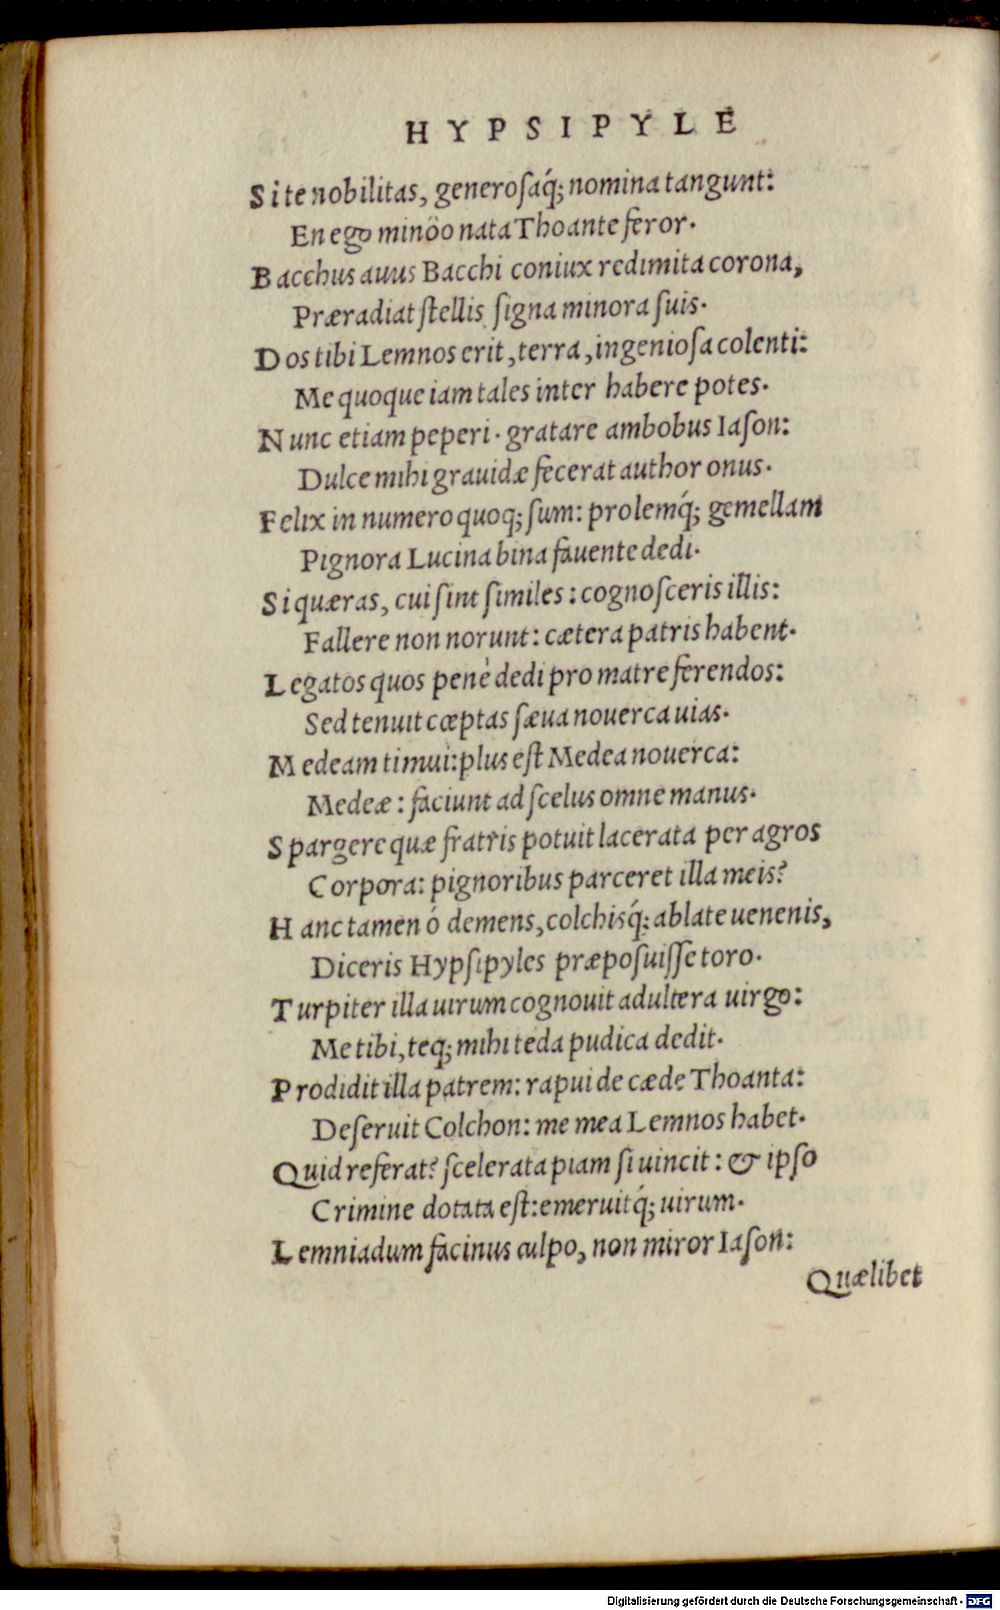 HYPSIPYLE
Si te nobilitas, generoſaq́; nomina tangunt:
En ego minöo nata Thoante feror.
Bacchus auus Bacchi coniux redimita corona,
Præradiat ſtellis ſigna minora ſuis.
Dos tibi Lemnos erit, terra, ingenioſa colenti:
Me quoque iam tales inter habere potes.
Nunc etiam peperi. gratare ambobus Iaſon:
Dulce mihi grauidæ fecerat author onus.
Felix in numero quoq; ſum: prolemq́; gemellam
Pignora Lucina bina fauente dedi.
Si quæras, cui ſint ſimiles: cognoſceris illis:
Fallere non norunt: cætera patris habent.
Legatos quos penè dedi pro matre ferendos:
Sed tenuit cœptas ſæua nouerca uias.
Medeam timui: plus eſt Medea nouerca:
Medeæ: faciunt ad ſcelus omne manus.
Spargere quæ fratris potuit lacerata per agros
Corpora: pignoribus parceret illa meis?
Hanc tamen ó demens, colchisq́; ablate uenenis,
Diceris Hypſipyles præpoſuiſſe toro.
Turpiter illa uirum cognouit adultera uirgo:
Me tibi, teq; mihi teda pudica dedit.
Prodidit illa patrem: rapui de cæde Thoanta:
Deſeruit Colchon: me mea Lemnos habet.
Quid referat? ſcelerata piam ſi uincit: & ipſo
Crimine dotata eſt: emeruitq́; uirum.
Lemniadum facinus culpo, non miror Iaſon:
Quælibet
Digitalisierung gefördert durch die Deutsche Forschungsgemeinschaft - DFG